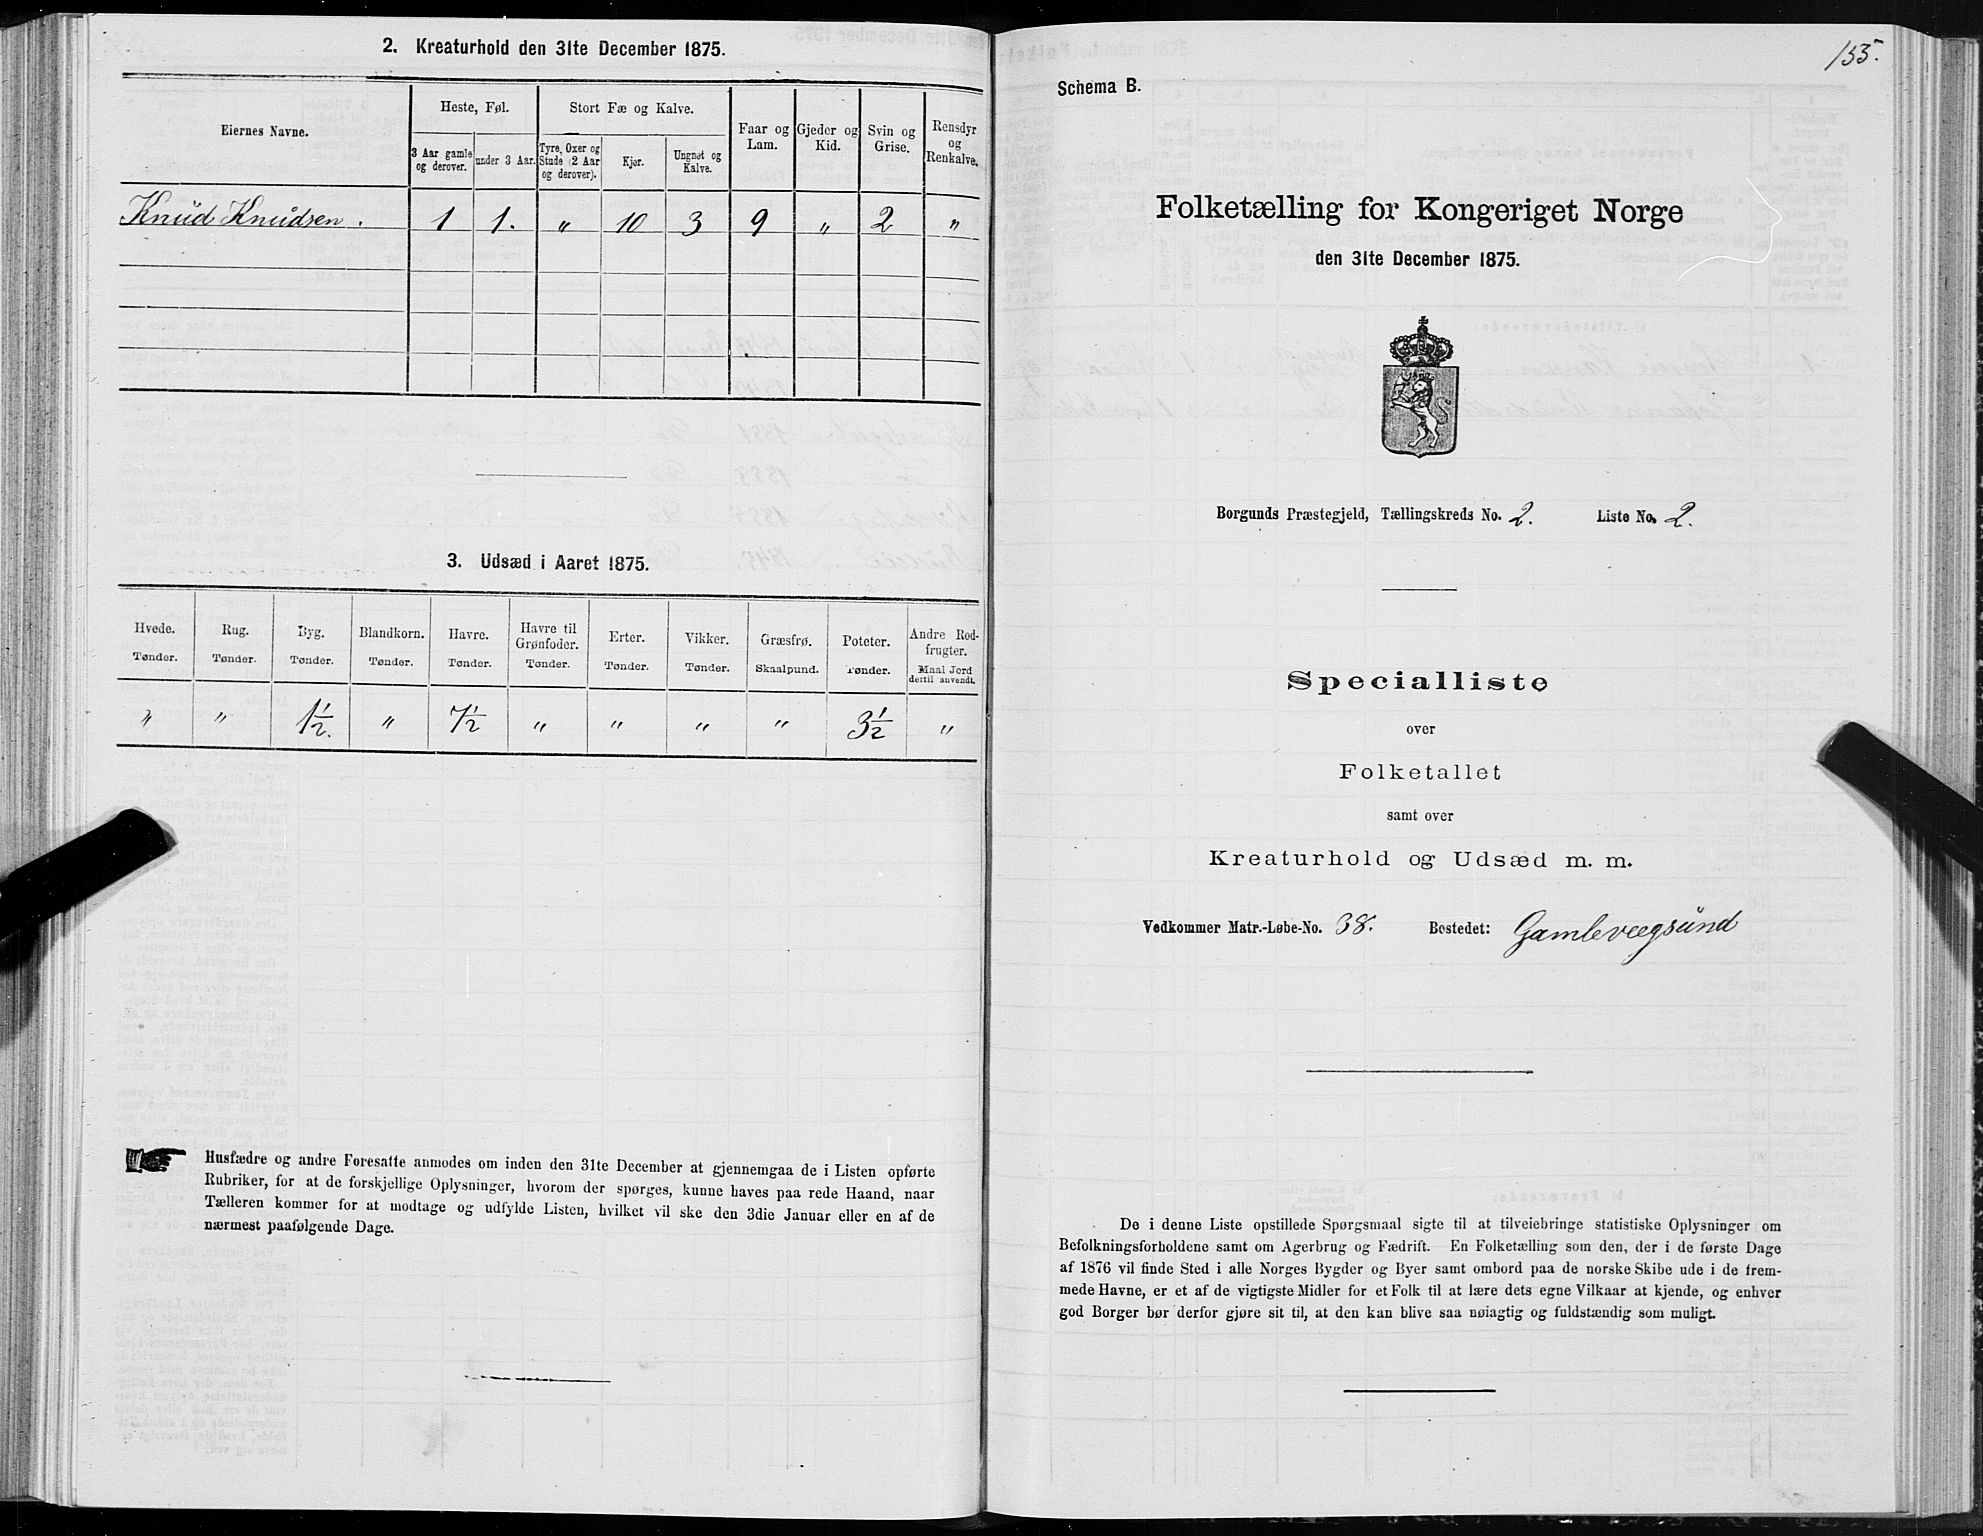 2. Kreaturhold den 31te December 1875.
Eiernes Navne.
Heste, Føl.
Stort Fæ og Kalve.
Faar og Lam.
Gjeder og Kid.
Svin og Grise.
Rensdyr og Renkalve.
3 Aar gamle og derover.
under 3 Aar.
Tyre, Oxer og Stude (2 Aar og derover).
Kjør.
Ungnøt og Kalve.
Knud Knudsen. 1 1. „ 10 3 9 „ 2 „
3. Udsæd i Aaret 1875.
Hvede. Rug. Byg. Blandkorn. Havre. Havre til Grønfoder. Erter. Vikker. Græsfrø. Poteter. Andre Rodfrugter.
Tønder. Tønder. Tønder. Tønder. Tønder. Tønder. Tønder. Tønder. Skaalpund. Tønder. Maal Jord dertil anvendt.
„ „ 1½. „ 7½ „ „ „ „ 3½ „
Husfædre og andre Foresatte anmodes om inden den 31te December at gjennemgaa de i Listen opførte
Rubriker, for at de forskjellige Oplysninger, hvorom der spørges, kunne haves paa rede Haand, naar
Tælleren kommer for at modtage og udfylde Listen, hvilket vil ske den 3die Januar eller en af de
nærmest paafølgende Dage.
155.
Schema B.
Folketælling for Kongeriget Norge
den 31te December 1875.
Borgunds Præstegjeld, Tællingskreds No. 2. Liste No. 2.
Specialliste
over
Folketallet
samt over
Kreaturhold og Udsæd m. m.
Vedkommer Matr.-Løbe-No. 38. Bostedet: Gamleveegsund
De i denne Liste opstillede Spørgsmaal sigte til at tilveiebringe statistiske Oplysninger om
Befolkningsforholdene samt om Agerbrug og Fædrift. En Folketælling som den, der i de første Dage
af 1876 vil finde Sted i alle Norges Bygder og Byer samt ombord paa de norske Skibe ude i de frem-
mede Havne, er et af de vigtigste Midler for et Folk til at lære dets egne Vilkaar at kjende, og enhver
god Borger bør derfor gjøre sit til, at den kan blive saa nøiagtig og fuldstændig som muligt.